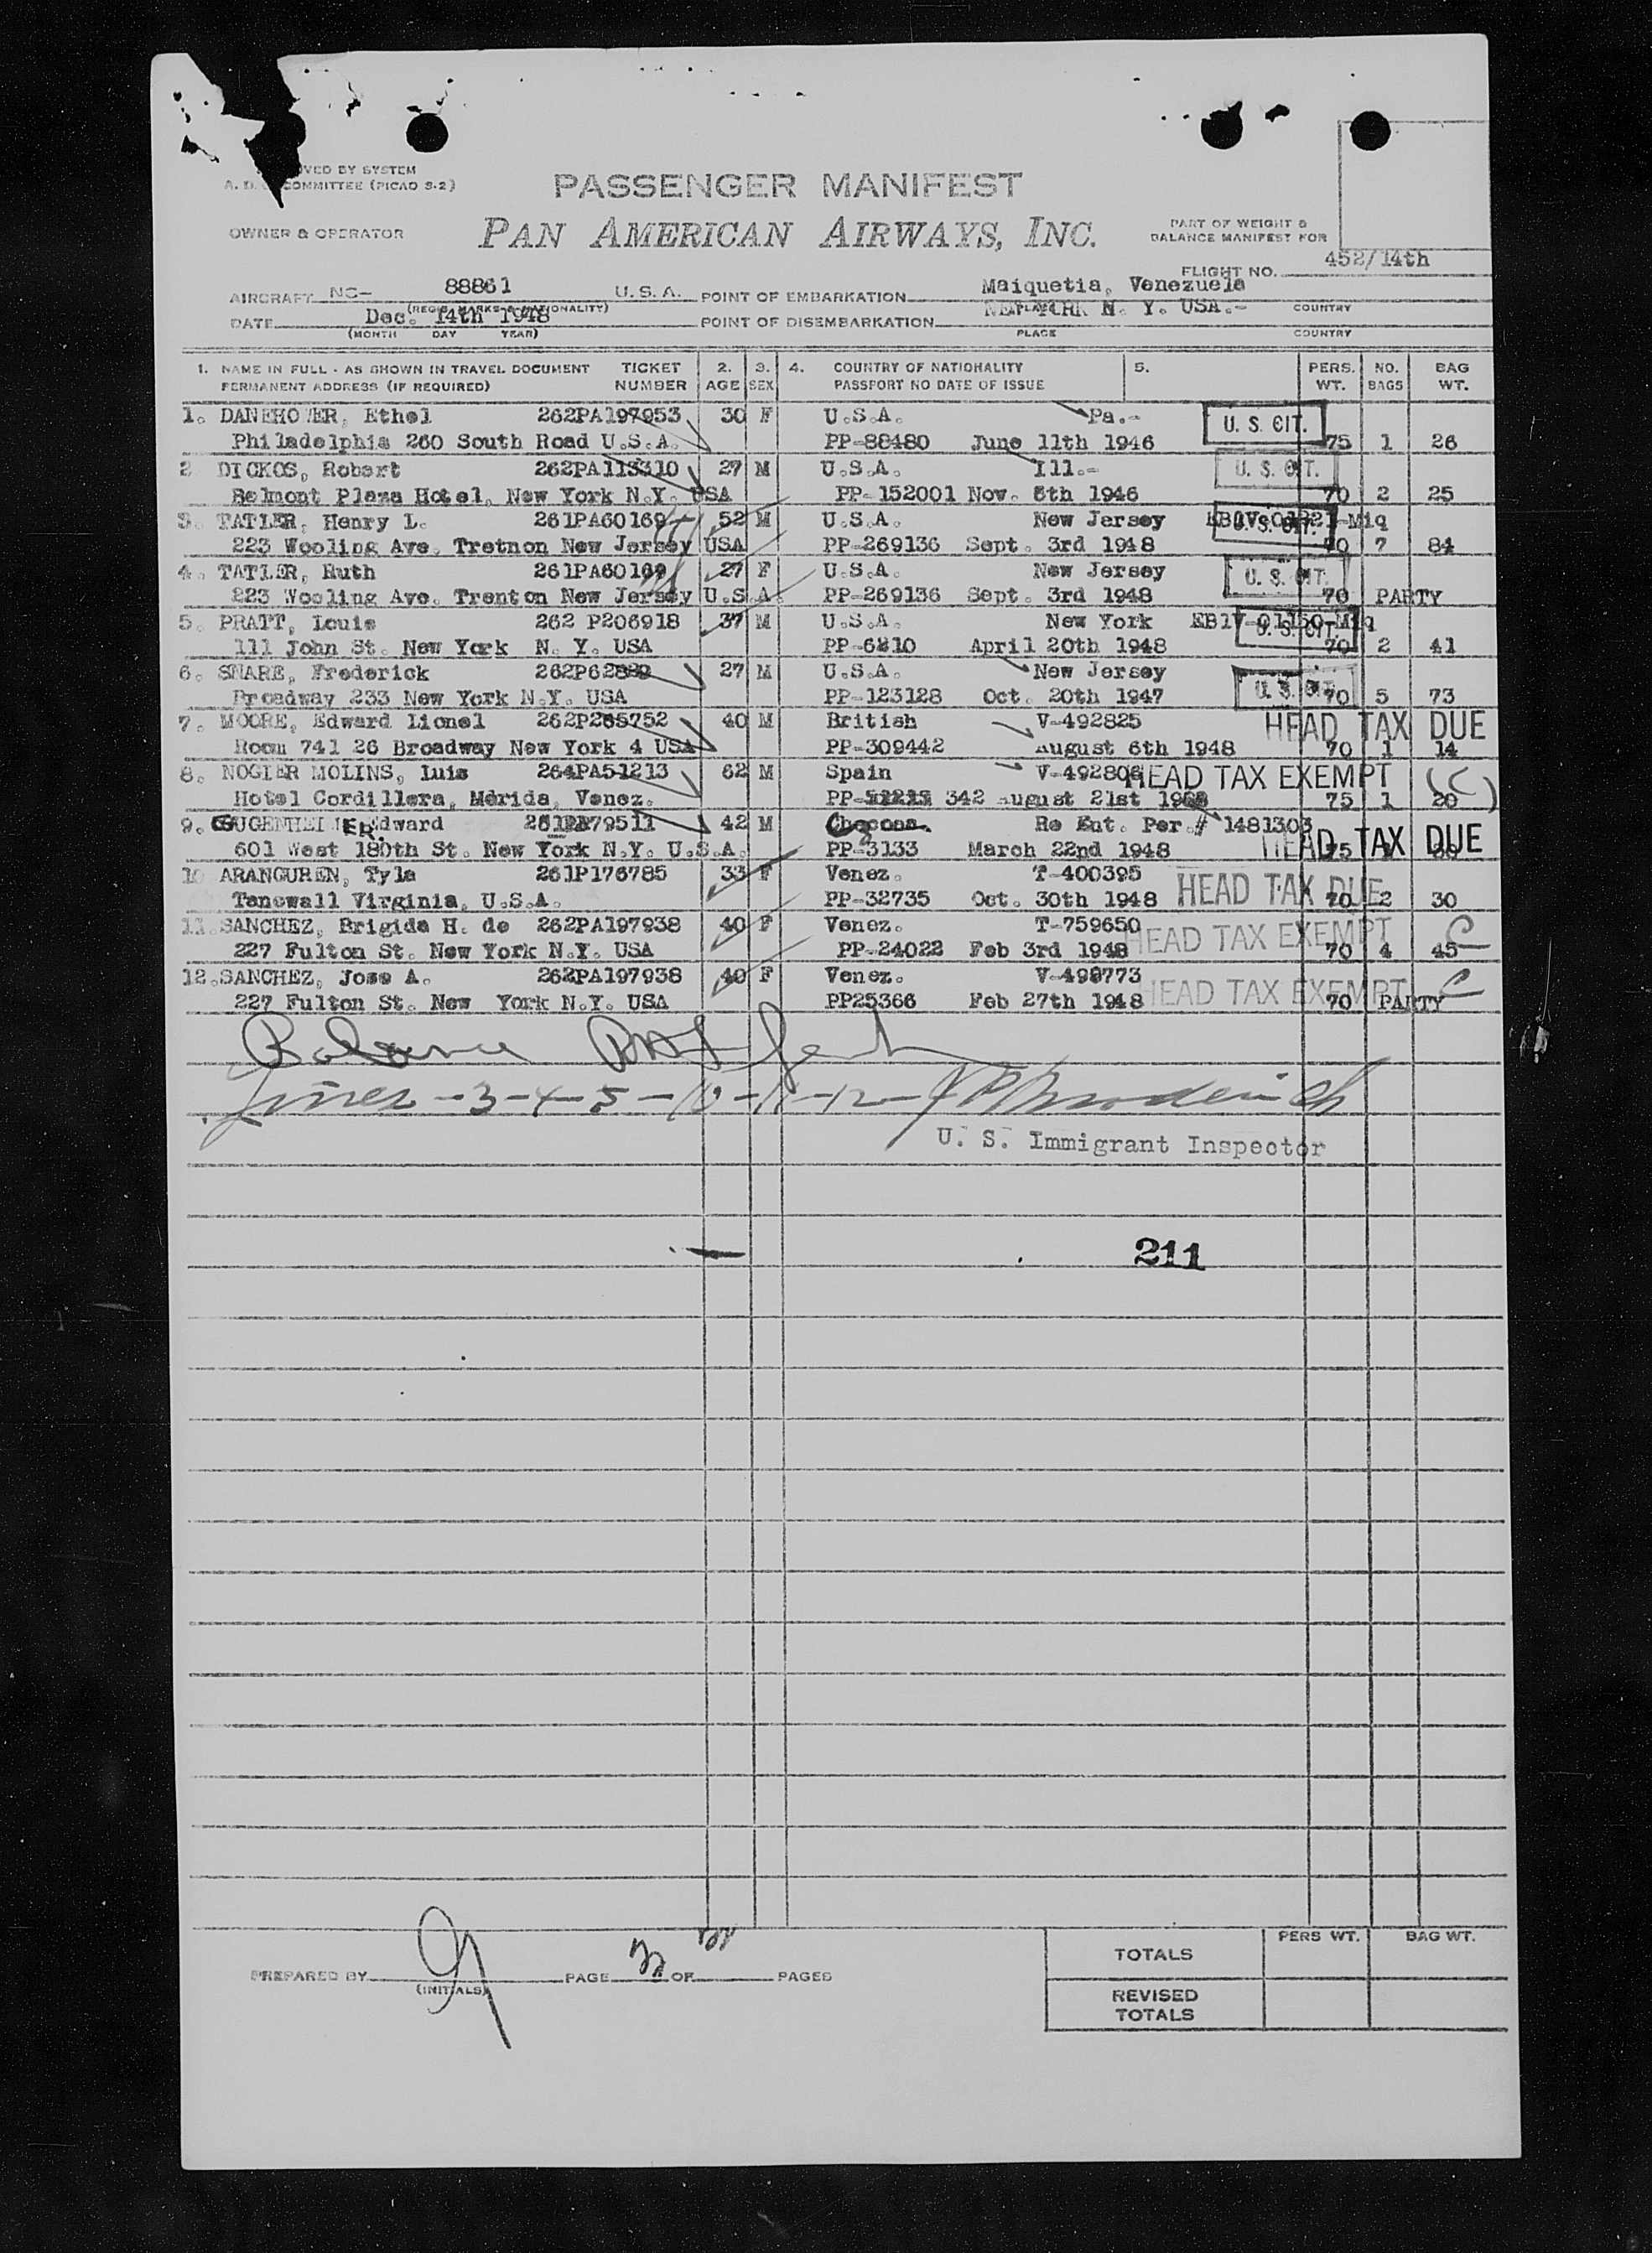 OVED BY SYSTEM
COMMITTEE (PICAO S-2)
PASSENGER MANIFEST
OWNER & OPERATOR
PAN AMERICAN AIRWAYS, INC.
PART OF WEIGHT &
BALANCE MANIFEST FOR
FLIGHT NO. 452/14th
AIRCRAFT NC- 88861 U.S.A. POINT OF EMBARKATION Maiquetia, Venezuela
(REGIS. MARKS & NATIONALITY) PLACE COUNTRY
DATE Dec. 14th 1948 POINT OF DISEMBARKATION NEW YORK N. Y. USA.-
(MONTH DAY YEAR) PLACE COUNTRY
1. NAME IN FULL - AS SHOWN IN TRAVEL DOCUMENT TICKET 2. 3. 4. COUNTRY OF NATIONALITY 5. PERS. NO. BAG
PERMANENT ADDRESS (IF REQUIRED) NUMBER AGE SEX PASSPORT NO DATE OF ISSUE WT. BAGS WT.
1. DANEHOWER, Ethel 262PA197953 30 F U.S.A. Pa.- U. S. CIT.
Philadelphia 260 South Road U.S.A. PP-88480 June 11th 1946 75 1 26
2 DICKOS, Robert 262PA113310 27 M U.S.A. Ill.- U. S. CIT.
Belmont Plaza Hotel, New York N.Y. USA PP-152001 Nov. 8th 1946 70 2 25
3. TATLER, Henry L. 261PA60169 52 M U.S.A. New Jersey U. S. CIT.
223 Wooling Ave. Tretnon New Jersey USA PP-269136 Sept. 3rd 1948 70 7 84
4. TATLER, Ruth 261PA60169 27 F U.S.A. New Jersey U. S. CIT.
223 Wooling Ave. Trenton New Jersey U.S.A. PP-269136 Sept. 3rd 1948 70 PARTY
5. PRATT, Louis 262 P206918 37 M U.S.A. New York EB1V-01150-Miq U. S. CIT.
111 John St. New York N. Y. USA PP-6810 April 20th 1948 70 2 41
6. SNARE, Frederick 27 M U.S.A. New Jersey
Broadway 233 New York N.Y. USA PP-123128 Oct. 20th 1947 U. S. CIT. 70 5 73
7. MOORE, Edward Lionel 262P265752 40 M British V-492825 HEAD TAX DUE
Room 741 26 Broadway New York 4 USA PP-309442 August 6th 1948 70 1 14
8. NOGIER MOLINS, Luis 264PA51213 62 M Spain V-492808 HEAD TAX EXEMPT (C)
Hotel Cordillera, Mérida, Venez. 342 August 21st 75 1 20
9. GUGENHEIMER, Edward 42 M Re Ent. Per.# 1481303
601 West 180th St. New York N.Y. U.S.A. PP-3133 March 22nd 1948 HEAD TAX DUE 75
10 ARANGUREN, Tyla 261P176785 33 F Venez. T-400395
Tanewall Virginia, U.S.A. PP-32735 Oct. 30th 1948 HEAD TAX DUE 70 2 30
11. SANCHEZ, Brigida H. de 262PA197938 40 F Venez. T-759650 HEAD TAX EXEMPT C
227 Fulton St. New York N.Y. USA PP-24022 Feb 3rd 1948 70 4 45
12. SANCHEZ, Jose A. 262PA197938 40 F Venez. V-498773
227 Fulton St. New York N.Y. USA PP25366 Feb 27th 1948 HEAD TAX EXEMPT C 70 PARTY
Lines -3-4-5-10-11-12-
U. S. Immigrant Inspector
211
PREPARED BY PAGE OF PAGES
(INITIALS)
PERS WT. BAG WT.
TOTALS
REVISED
TOTALS